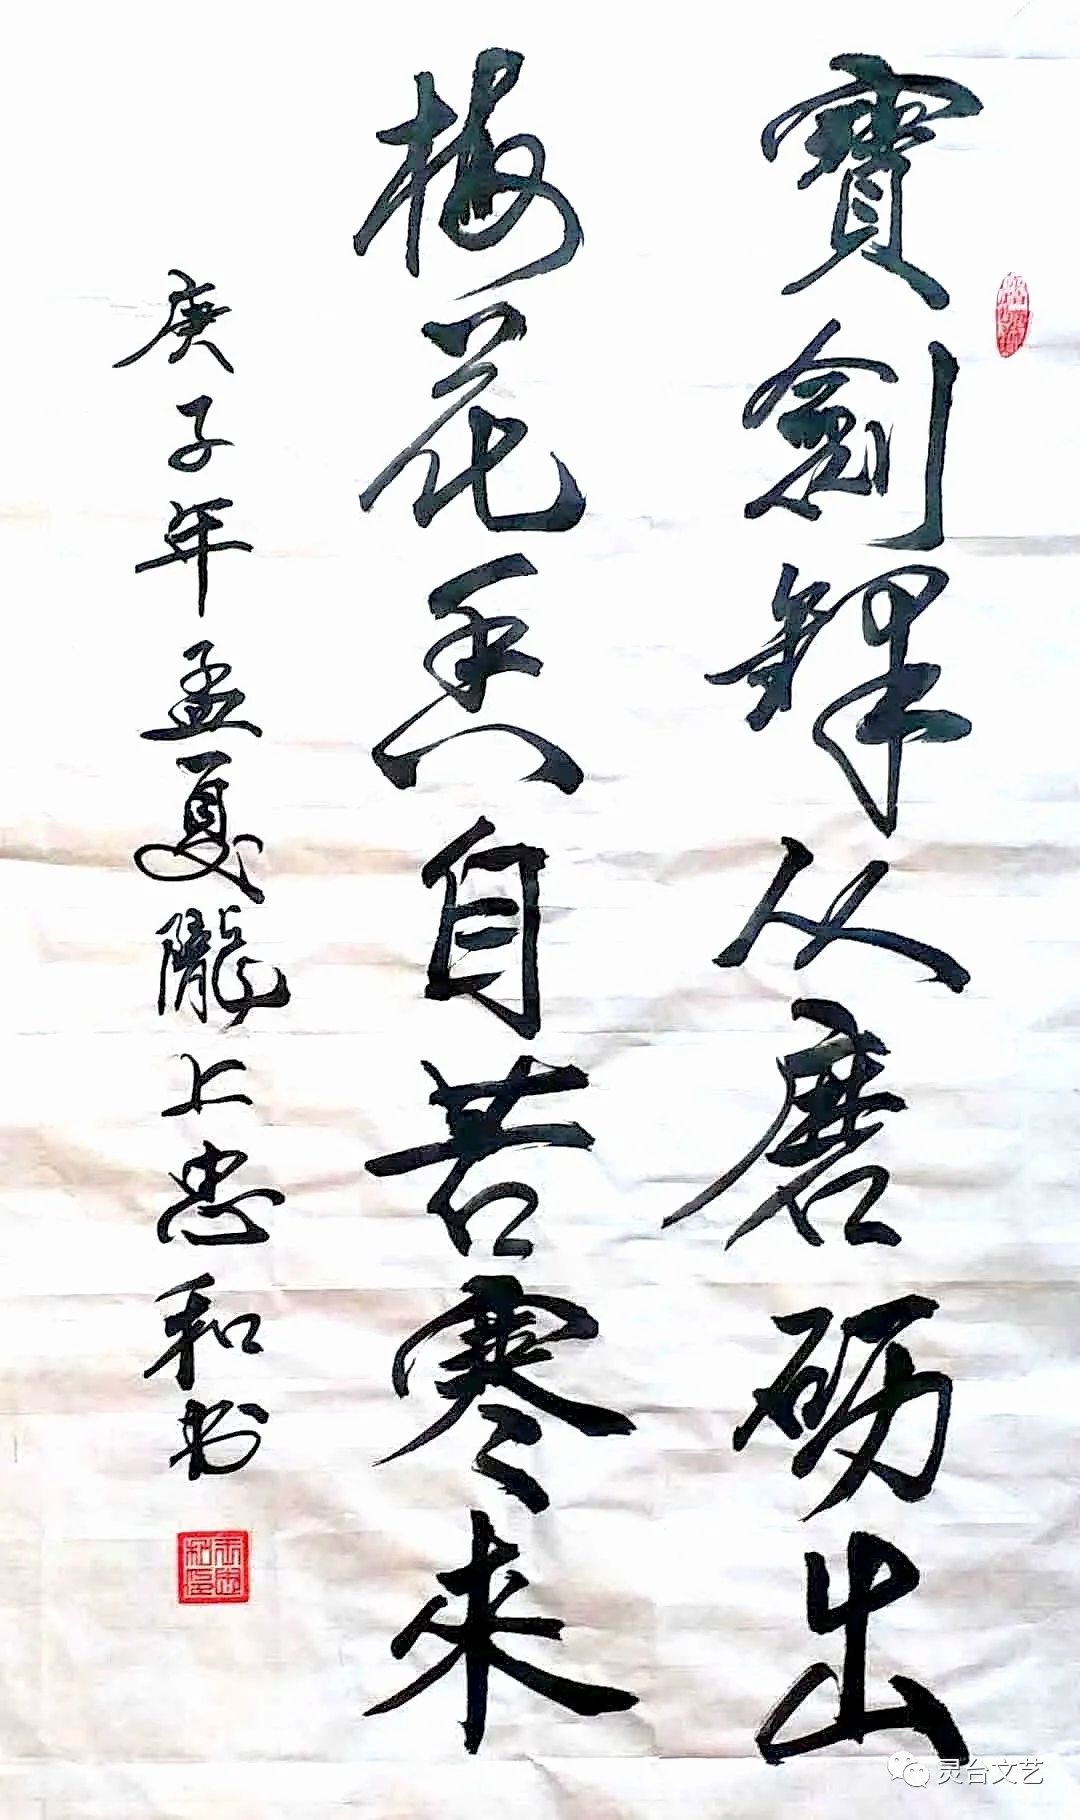 寶劍鋒从磨砺出
梅花香自苦寒来
庚子年孟夏隴上忠和书
灵台文艺